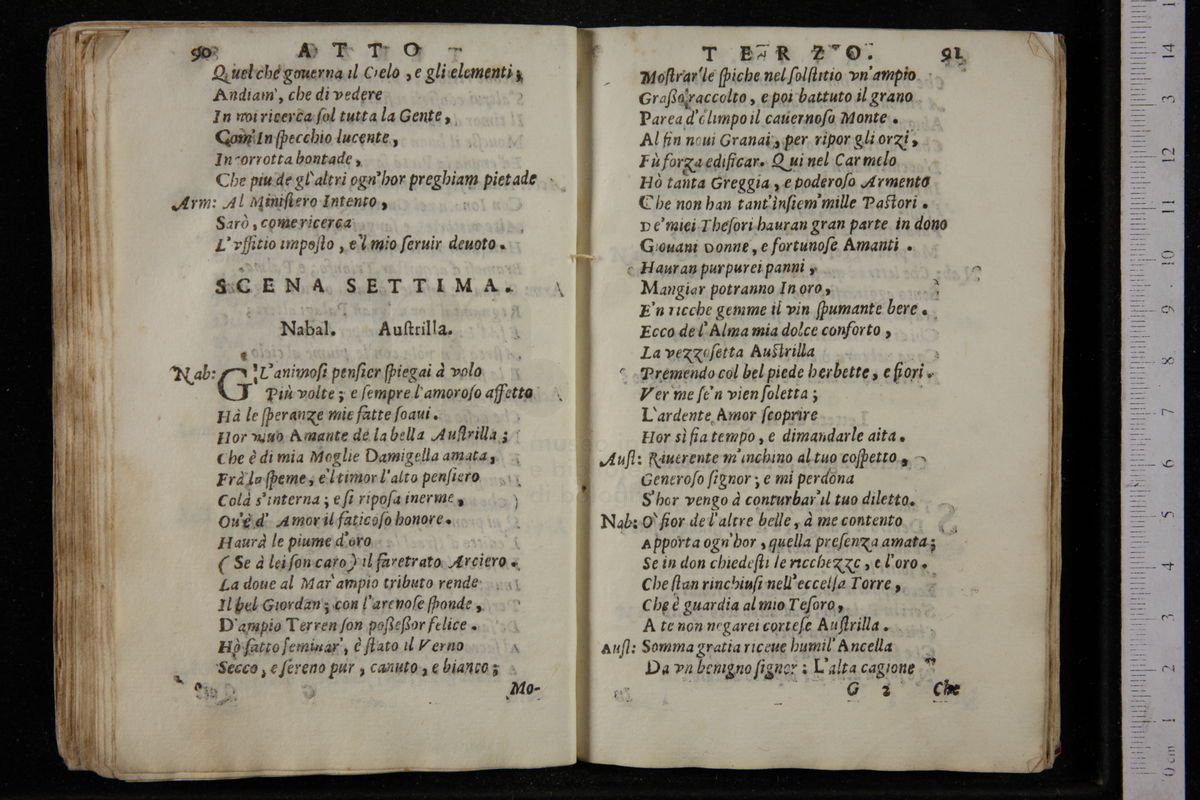 90 ATTO
Quel che gouerna il Cielo, e gli elementi;
Andiam', che di vedere
In noi ricerca ſol tutta la Gente,
Com' In ſpecchio lucente,
Incorrotta bontade,
Che piu de gl'altri ogn'hor preghiam pietade
Arm: Al Miniſtero Intento,
Sarò, come ricerca
L'vffitio impoſto, e'l mio ſeruir deuoto.
SCENA SETTIMA.
Nabal. Auſtrilla.
Nab: GL'animoſi penſier ſpiegai à volo
Più volte; e ſempre l'amoroſo affetto
Hà le ſperanze mie fatte ſoaui.
Hor viuo Amante de la bella Auſtrilla;
Che è di mia Moglie Damigella amata,
Frà la ſpeme, e'l timor l'alto penſiero
Colà s'interna; e ſi ripoſa inerme,
Ou'è d' Amor il faticoſo honore.
Haurà le piume d'oro
(Se à lei ſon caro) il faretrato Arciero.
La doue al Mar' ampio tributo rende
Il bel Giordan; con l'arenoſe ſponde,
D'ampio Terren ſon poßeßor felice.
Hò fatto ſeminar', è ſtato il Verno
Secco, e ſereno pur, canuto, e bianco;
Mo-
TERZO. 91
Moſtrar' le ſpiche nel ſolſtitio vn'ampio
Graßo raccolto, e poi battuto il grano
Parea d'olimpo il cauernoſo Monte.
Al fin noui Granai, per ripor gli orzi,
Fù forza edificar. Qui nel Carmelo
Hò tanta Greggia, e poderoſo Armento
Che non han tant'inſiem' mille Paſtori.
De' miei Theſori hauran gran parte in dono
Giouani Donne, e fortunoſe Amanti.
Hauran purpurei panni,
Mangiar potranno In oro,
E'n ricche gemme il vin ſpumante bere.
Ecco de l'Alma mia dolce conforto,
La vezzoſetta Auſtrilla
Premendo col bel piede herbette, e fiori.
Ver me ſe'n vien ſoletta;
L'ardente Amor ſcoprire
Hor sì fia tempo, e dimandarle aita.
Auſt: Riuerente m'inchino al tuo coſpetto,
Generoſo ſignor; e mi perdona
S'hor vengo à conturbar' il tuo diletto.
Nab: O' fior de l'altre belle, à me contento
Apporta ogn'hor, quella preſenza amata;
Se in don chiedeſti le ricchezze, e l'oro.
Che ſtan rinchiuſi nell'eccelſa Torre,
Che è guardia al mio Teſoro,
A te non negarei corteſe Auſtrilla.
Auſt: Somma gratia riceue humil' Ancella
Da vn benigno ſignor: L'alta cagione
G 2 Che